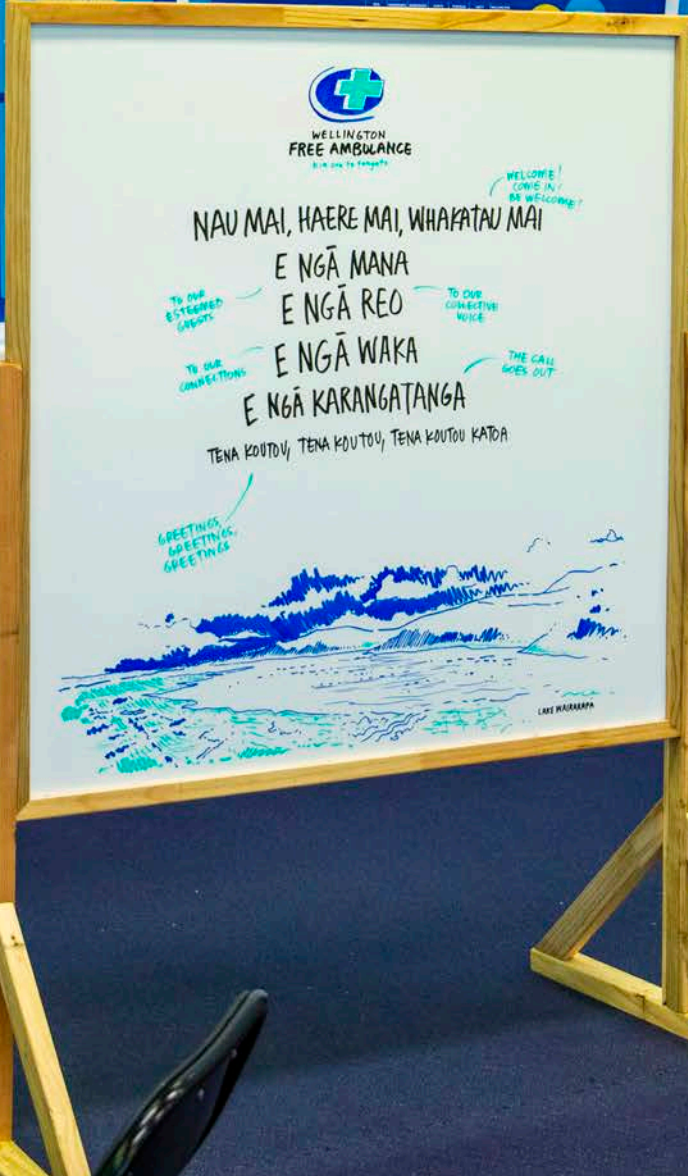 WELLINGTON
FREE AMBULANCE
WELCOME!
COME IN!
BE WELCOME!
NAU MAI, HAERE MAI, WHAKATAU MAI
E NGĀ MANA
TO OUR
ESTEEMED
GUESTS
E NGĀ REO
TO OUR
COLLECTIVE
VOICE
E NGĀ WAKA
TO OUR
CONNECTIONS
THE CALL
GOES OUT
E NGĀ KARANGATANGA
TENA KOUTOU, TENA KOUTOU, TENA KOUTOU KATOA
GREETINGS,
GREETINGS,
GREETINGS
LAKE WAIRARAPA